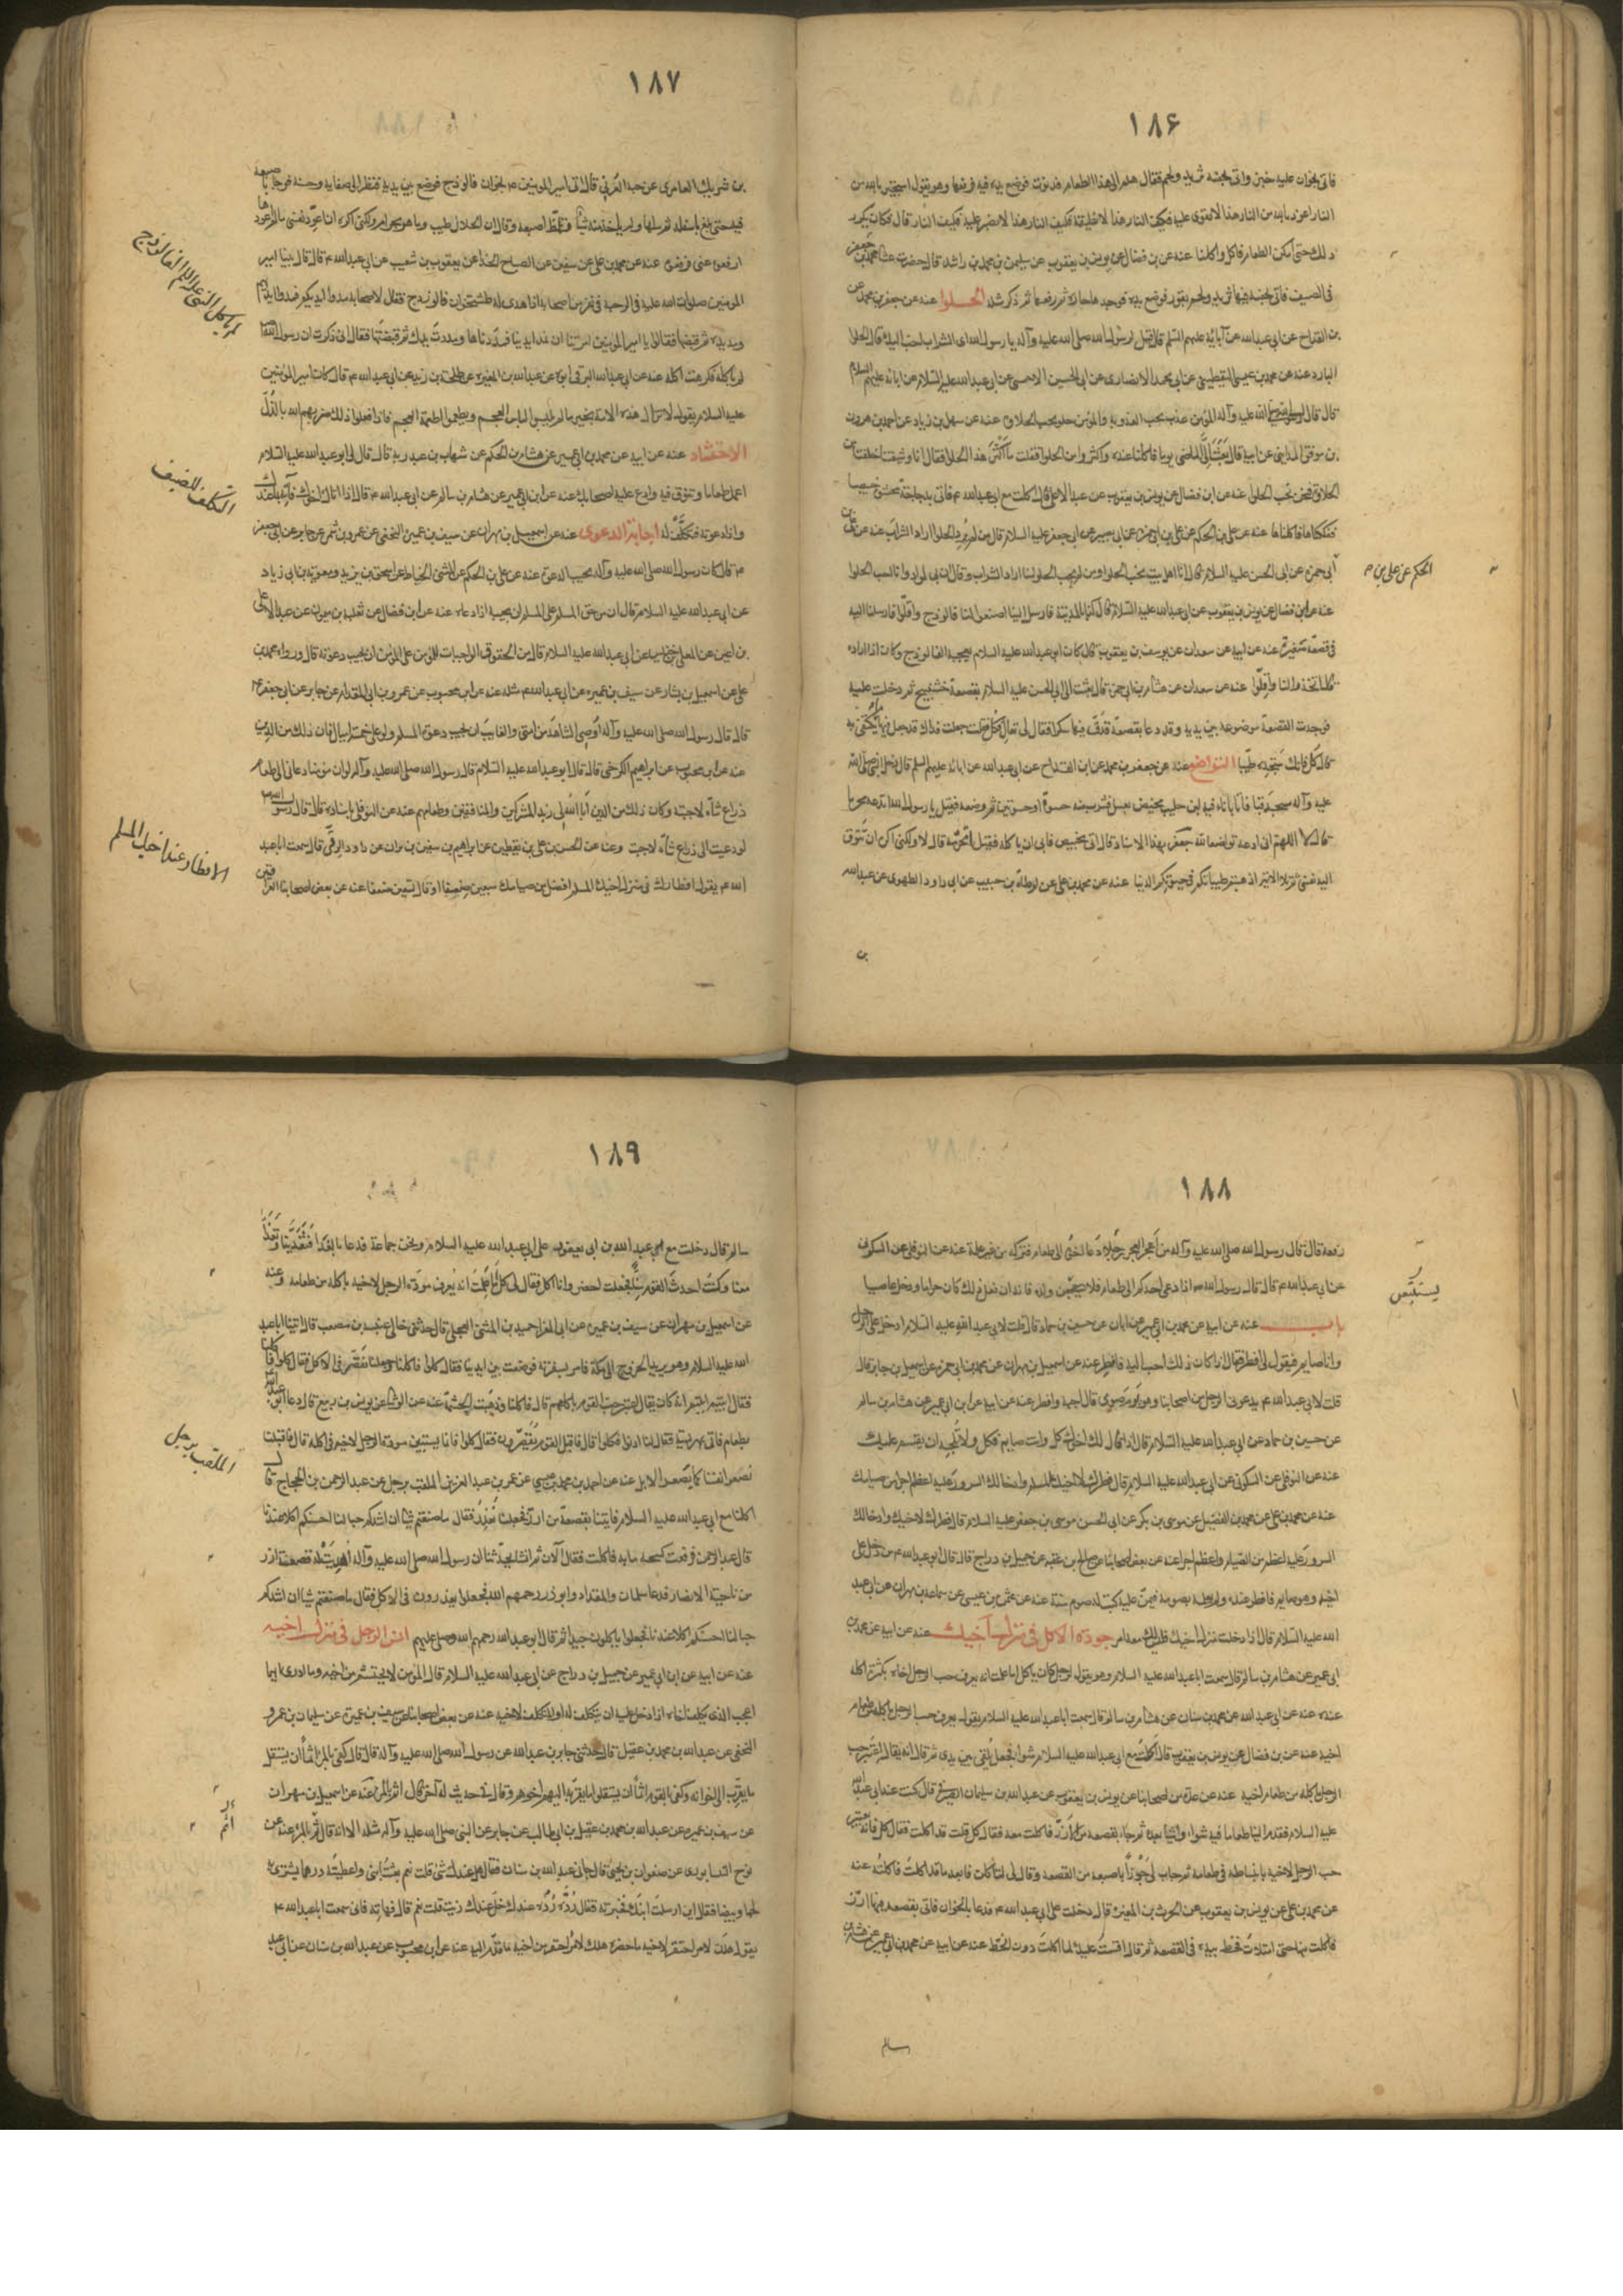 ١٨۶
فاتى بخوان عليه خبز واتى بجفنة ثريد ولحم فقال هلم الى هذا الطعام فدنوت فوضع يده فيه فرفعها وهو يقول استجير بالله من
النار اعوذ بالله من النار هذا لا نقوى عليه فكيف النار هذا لا نطيقه فكيف النار هذا لا نصبر عليه فكيف النار قال فكان يكرر
ذلك حتى امكن الطعام فاكل واكلنا عنه عن بن فضال عن يونس بن يعقوب عن سليمن بن محمد بن راشد قال حضرت عشا جعفر بن محمد
فى الصيف فاتى بجفنة فيها ثريد ولحم يفور فوضع يده فوجدها حارة ثم رفعها ثم ذكر مثله الحلوا عنه عن جعفر بن محمد عن
بن القداح عن ابى عبد الله عن آبائه عليهم السلم قال قيل لرسول الله صلى الله عليه وآله يا رسول الله اى الشراب احب اليك قال الحلو
البارد عنه عن محمد بن عيسى اليقطينى عن ابى محمد الانصارى عن ابى الحسين الاحمسى عن ابى عبد الله عليه السلام عن ابائه عليهم السلام
قال قال رسول الله صلى الله عليه وآله المؤمن عذب يحب العذوبة والمؤمن حلو يحب الحلاوة عنه عن سهل بن زياد عن احمد بن هرون
بن موفق المداينى عن ابيه قال بعث الى الماضى يوما فاكلنا عنده واكثروا من الحلوا فقلت ما اكثر هذا الحلوا فقال انا وشيعتنا خلقنا من
الحلاوة فنحن نحب الحلوا عنه عن ابن فضال عن يونس بن يعقوب عن عبد الاعلى قال اكلت مع ابى عبد الله ع فاتى بدجاجة محشوة خبيصا
ففككناها فاكلناها عنه عن على بن الحكم عن على بن ابى حمزة عن ابى بصير عن ابى جعفر عليه السلام قال من لم يرد الحلوا اراد الشراب عنه عن على بن
ابى حمزة عن ابى الحسن عليه السلام قال انا اهل بيت نحب الحلوا ومن لم يحب الحلو منا اراد الشراب وقال ان بى لمواد وانا احب الحلوا
الحكم عن على بن م
عنه عن ابن فضال عن يونس بن يعقوب عن ابى عبد الله عليه السلام قال كنا بالمدينة فارسل الينا اصنعوا لنا فالوذج واقلوا فارسلنا اليه
فى قصعة صغيرة عنه عن ابيه عن سعدان عن يوسف بن يعقوب قال كان ابو عبد الله عليه السلام يعجبه الفالوذج وكان اذا اراده
قال اتخذوا لنا واقلوا عنه عن سعدان عن هشام بن ابى حمزة قال بعث الى ابى الحسن عليه السلام بقصعة خشتيج ثم دخلت عليه
فوجدت القصعة موضوعة بين يديه وقد دعا بقصعة فدق فيها سكرا فقال لى تعال فكل قلت جعلت فداك قد جعل فيها ما يكتفى به
قال كل فانك ستجده طيبا التواضع عنه عن جعفر بن محمد عن ابن القداح عن ابى عبد الله عن ابائه عليهم السلم قال دخل النبى صلى الله
عليه وآله مسجد قبا فاتى باناء فيه لبن حليب مخيض بعسل فشرب منه حسوة او حسوتين ثم وضعه فقيل يا رسول الله اتدعه محرما
قال لا اللهم انى ادعه تواضعا لله جعفر بهذا الاسناد قال اتى بخبيص فابى ان ياكله فقيل اتحرمه قال لا ولكنى اكره ان تتوق
اليه نفسى ثم تلا الاية اذهبتم طيباتكم فى حياتكم الدنيا عنه عن محمد بن على عن ارطاة بن حبيب عن ابى داود الطهوى عن عبد الله
بن
١٨٧
بن شريك العامرى عن حبة العرنى قال اتى امير المؤمنين ع بخوان فالوذج فوضع بين يديه فنظر الى صفايه وحسنه فوجا باصبعه
فيه حتى بلغ باسفله ثم سلها ولم ياخذ منه شيئا وتلمظ اصبعه وقال ان الحلال طيب وما هو بحرام ولكنى اكره ان اعود نفسى ما لم اعودها
ارفعوه عنى فرفعوه عنه عن محمد بن على عن سفين عن الصباح الحذا عن يعقوب بن شعيب عن ابى عبد الله ع قال قال بينا امير
لم ياكل النبى عليه السلام الفالوذج
المومنين صلوات الله عليه فى الرحبة فى نفر من اصحابه اذ اهدى له طشت خوان فالوذج فقال لاصحابه مدوا ايديكم فمدوا ايديهم
ومد يده ثم قبضها فقالوا يا امير المؤمنين امرتنا ان نمد ايدينا فمددناها ومددت يدك ثم قبضتها فقال انى ذكرت ان رسول الله ص
لم ياكله فكرهت اكله عنه عن ابى عبد الله البرقى ابيه عن عبد الله بن المغيره عن طلحة بن زيد عن ابى عبد الله ع قال كان امير المؤمنين
عليه السلام يقول لا تزال هذه الامة بخير ما لم يلبسوا لباس العجم ويطعموا اطعمة العجم فاذا فعلوا ذلك ضربهم الله بالذل
الاحتشاد عنه عن ابيه عن محمد بن ابى عمير عن هشام بن الحكم عن شهاب بن عبد ربه قال قال لى ابو عبد الله عليه السلام
اعمل طعاما وتنوق فيه وادع عليه اصحابك عنه عن ابن ابى عمير عن هشام بن سالم عن ابى عبد الله ع قال اذا اتاك اخوك فآته بما عندك
التكلف للضيف
واذا دعوته فتكلف له اجابة الدعوى عنه عن اسمعيل بن مهران عن سيف بن عميره النخعى عن عمرو بن شمر عن جابر عن ابى جعفر
ع قال كان رسول الله صلى الله عليه وآله يجيب الدعوة عنه عن على بن الحكم عن المثنى الحناط عن اسحق بن يزيد ومعوية بن ابى زياد
عن ابى عبد الله عليه السلام قال ان من حق المسلم على المسلم ان يجيبه اذا دعاه عنه عن ابن فضال عن ثعلبه بن ميمون عن عبد الاعلى
بن اعين عن المعلى بن خنيس عن ابى عبد الله عليه السلام قال من الحقوق الواجبات للمؤمن على المؤمن ان يجيب دعوته قال ورواه محمد بن
على عن اسمعيل بن بشار عن سيف بن عميره عن ابى عبد الله ع مثله عنه عن ابن محبوب عن عمرو بن ابى المقدام عن جابر عن ابى جعفر ع
قال قال رسول الله صلى الله عليه وآله اوصى الشاهد من امتى والغايب ان يجيب دعوة المسلم ولو على خمسة اميال فان ذلك من الدين
عنه عن ابن محبوب عن ابراهيم الكرخى قال قال ابو عبد الله عليه السلام قال رسول الله صلى الله عليه وآله لو ان مؤمنا دعانى الى طعام
ذراع شاة لاجبته وكان ذلك من الدين ابى الله لى زبد المشركين والمنافقين وطعامهم عنه عن النوفلى باسناده قال قال رسول الله ص
لو دعيت الى ذراع شاة لاجبت وعنه عن الحسن بن على بن يقطين عن ابراهيم بن سفين بن بران عن داود الرقى قال سمعت ابا عبد
الافطار عند اخيه المسلم
الله ع يقول افطارك فى منزل اخيك المسلم افضل من صيامك سبعين ضعفا او قال تسعين ضعفا عنه عن بعض اصحابنا العراقيين
١٨٨
رفعه قال قال رسول الله صلى الله عليه وآله من اعجز العجز رجل دعاه اخوه الى طعام فتركه من غير علة عنه عن النوفلى عن السكونى
عن ابى عبد الله ع قال قال رسول الله ص اذا دعى احدكم الى طعام فلا يستتبعن ولده فانه ان فعل ذلك كان حراما ودخل عاصيا
يستتبعن
باب عنه عن ابيه عن محمد بن ابى عمير عن ابان عن حسين بن حماد قال قلت لابى عبد الله عليه السلام ادخل على الرجل
وانا صايم فيقول لى افطر فقال اذا كان ذلك احب اليه فافطر عنه عن اسمعيل بن مهران عن محمد بن ابى حمزه عن اسمعيل بن جابر قال
قلت لابى عبد الله ع يدعونى الرجل من اصحابنا وهو يوم صومى قال اجبه وافطر عنه عن ابيه عن ابن ابى عمير عن هشام بن سالم
عن حسين بن حماد عن ابى عبد الله عليه السلام قال اذا قال لك اخوك كل وانت صايم فكل ولا تلجئه ان يقسم عليك
عنه عن النوفلى عن السكونى عن ابى عبد الله عليه السلام قال فطرك لاخيك المسلم وادخالك السرور عليه اعظم اجرا من صيامك
عنه عن محمد بن على عن محمد بن الفضيل عن موسى بن بكر عن ابى الحسن موسى بن جعفر عليه السلام قال فطرك لاخيك وادخالك
السرور عليه اعظم من الصيام واعظم اجرا عنه عن بعض اصحابنا عن صالح بن عقبه عن جميل بن دراج قال قال ابو عبد الله ع من دخل على
اخيه وهو صايم فافطر عنده ولم يعلمه بصومه فيمن عليه كتب له صوم سنة عنه عن عثمن بن عيسى عن سماعة بن مهران عن ابى عبد
الله عليه السلام قال اذا دخلت منزل اخيك فليس لك معه امر جودة الاكل فى منزل اخيك عنه عن ابيه عن محمد بن
ابى عمير عن هشام بن سالم قال سمعت ابا عبد الله عليه السلام وهو يقول لرجل كان ياكل اما علمت انه يعرف حب الرجل اخاه بكثرة اكله
عنده عنه عن ابى عبد الله عن محمد بن سنان عن هشام بن سالم قال سمعت ابا عبد الله عليه السلام يقول يعرف حب الرجل باكله من طعام
اخيه عنه عن بن فضال عن يونس بن يعقوب قال اكلت مع ابى عبد الله عليه السلام شوا فجعل يلقى بين يدى ثم قال انه يقال اعتبر حب
الرجل باكله من طعام اخيه عنه عن عدة من اصحابنا عن يونس بن يعقوب عن عبد الله بن سليمان الصيرفى قال كنت عند ابى عبد الله
عليه السلام فقدم الينا طعاما فيه شواء واشيا بعده ثم جاء بقصعة من ارز فاكلت معه فقال كل قلت قد اكلت فقال كل فانه يعتبر
حب الرجل لاخيه بانبساطه فى طعامه ثم حاز لى حوزا باصبعه من القصعه وقال لى لتاكلن ذا بعد ما قد اكلت فاكلته عنه
عن محمد بن على عن يونس بن يعقوب عن الحرث بن المغيره قال دخلت على ابى عبد الله ع فدعا بالخوان فاتى بقصعة فيها ارز
فاكلت منها حتى امتلات فخط بيده فى القصعة ثم قال اقسمت عليك لما اكلت دون الخط عنه عن ابيه عن محمد بن ابى عمير عن هشام بن
سالم
١٨٩
سالم قال دخلت مع عبد الله بن ابى يعفور على ابى عبد الله عليه السلام ونحن جماعة فدعا بالغدا فتغدينا وتغدى
معنا وكنت احدث القوم سنا فجعلت احصر وانا اكل فقال لى كل اما علمت انه يعرف مودة الرجل لاخيه باكله من طعامه وعنه
عن اسمعيل بن مهران عن سيف بن عميره عن ابى المغرا حميد بن المثنى العجلى قال حدثنى خالى عنبسه بن مصعب قال اتينا ابا عبد
الله عليه السلام وهو يريد الخروج الى مكة فامر بسفرته فوضعت بين ايدينا فقال كلوا فاكلنا وجعلنا نقصر فى الاكل فقال كلوا فاكلنا
فقال ابيتم ابيتم انه كان يقال اعتبر حب القوم باكلهم قال فاكلنا وذهبت الحشمة عنه عن الوشا عن يونس بن ربيع قال دعا ابو عبد الله
بطعام فاتى بهريسة فقال لنا ادنوا فكلوا قال فاقبل القوم يقصرون فقال كلوا فانما يستبين مودة الرجل لاخيه فى اكله قال فاقبلنا
نصعر انفسنا كما يصعر الابل عنه عن احمد بن محمد بن عيسى عن عمر بن عبد العزيز الملقب بزحل عن عبد الرحمن بن الحجاج قال
الملقب بزحل
اكلنا مع ابى عبد الله عليه السلام فاتينا بقصعة من ارز فجعلنا نعذر فقال ما صنعتم شيئا ان اشدكم حبا لنا احسنكم اكلا عندنا
قال عبد الرحمن فرفعت كسحه ما به فاكلت فقال الآن ثم انشا يحدثنا ان رسول الله صلى الله عليه وآله اهديت له قصعة ارز
من ناحية الانصار فدعا سلمان والمقداد وابو ذر رحمهم الله فجعلوا يعذرون فى الاكل فقال ما صنعتم شيئا ان اشدكم
حبا لنا احسنكم اكلا عندنا فجعلوا ياكلون جيدا ثم قال ابو عبد الله رحمهم الله وصلى عليهم انس الرجل فى منزل اخيه
عنه عن ابيه عن ابن ابى عمير عن جميل بن دراج عن ابى عبد الله عليه السلام قال المؤمن لا يحتشم من اخيه وما ادرى ايهما
اعجب الذى يكلف اخاه اذا دخل عليه ان يتكلف له او المتكلف لاخيه عنه عن بعض اصحابنا عن سيف بن عميرة عن سليمان بن عمرو
النخعى عن عبد الله بن محمد بن عقيل قال حدثنى جابر بن عبد الله عن رسول الله صلى الله عليه وآله قال قال كفى بالمرء اثما ان يستقل
ما يقرب الى اخوانه وكفى بالقوم اثما ان يستقلوا ما يقربه اليهم اخوهم وقال فى حديث له آخر قال اثم بالمرء عنه عن اسمعيل بن مهران
عن سيف بن عميره عن عبد الله بن محمد بن عقيل بن ابى طالب عن جابر عن النبى صلى الله عليه وآله مثله الا انه قال اثم بالمرء عنه عن
اثم
نوح النيسابورى عن صفوان بن يحيى قال جاءنى عبد الله بن سنان فقال هل عندك شئ قلت نعم بعثت ابنى واعطيته درهما يشترى به
لحما وبيضا فقال اين ارسلت ابنك فخبرته فقال رده رده عندك خل عندك زيت قلت نعم قال فهاته فانى سمعت ابا عبد الله ع
يقول هلك لامرئ احتقر لاخيه ما حضره هلك لامرئ احتقر من اخيه ما قدم اليه عنه عن ابن محبوب عن عبد الله بن سنان عن ابى عبد